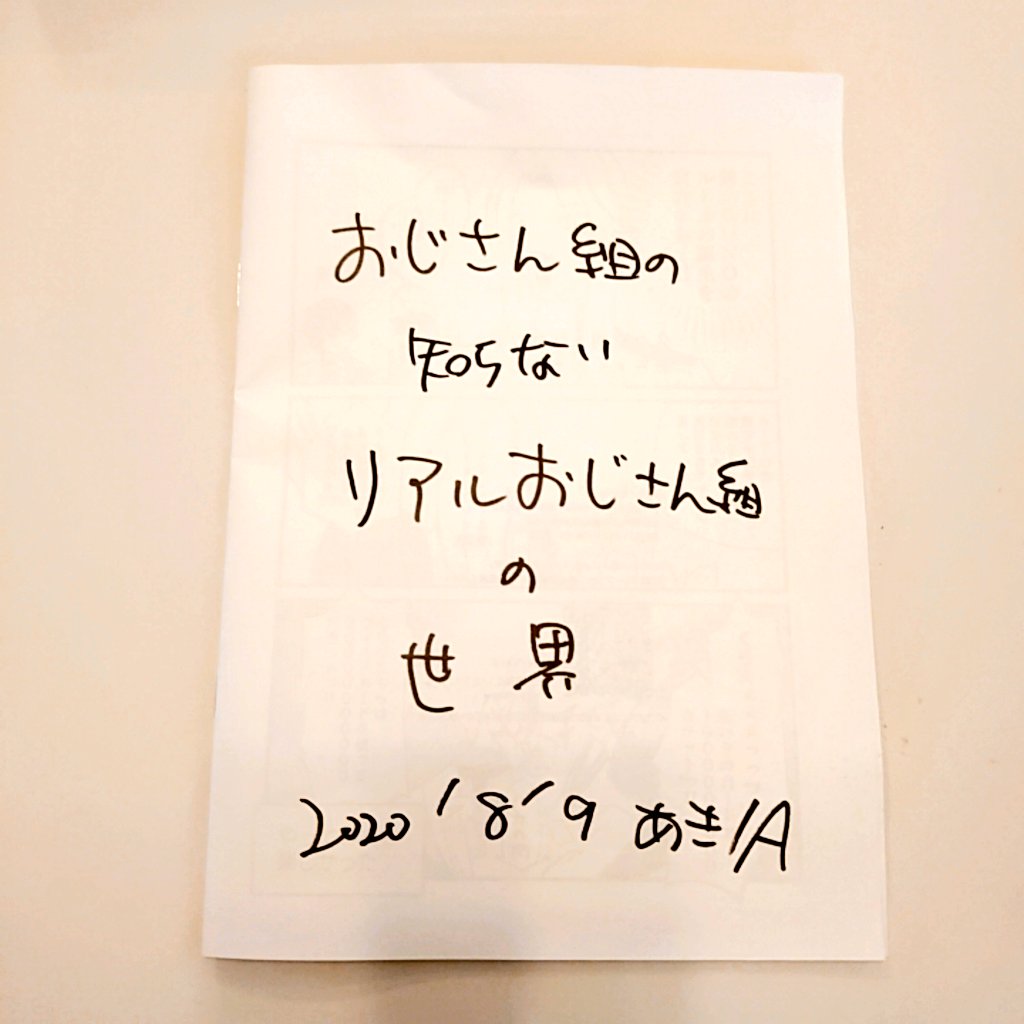 おじさん組の
知らない
リアルおじさん組
の
世界
2020'8'9 あき/A